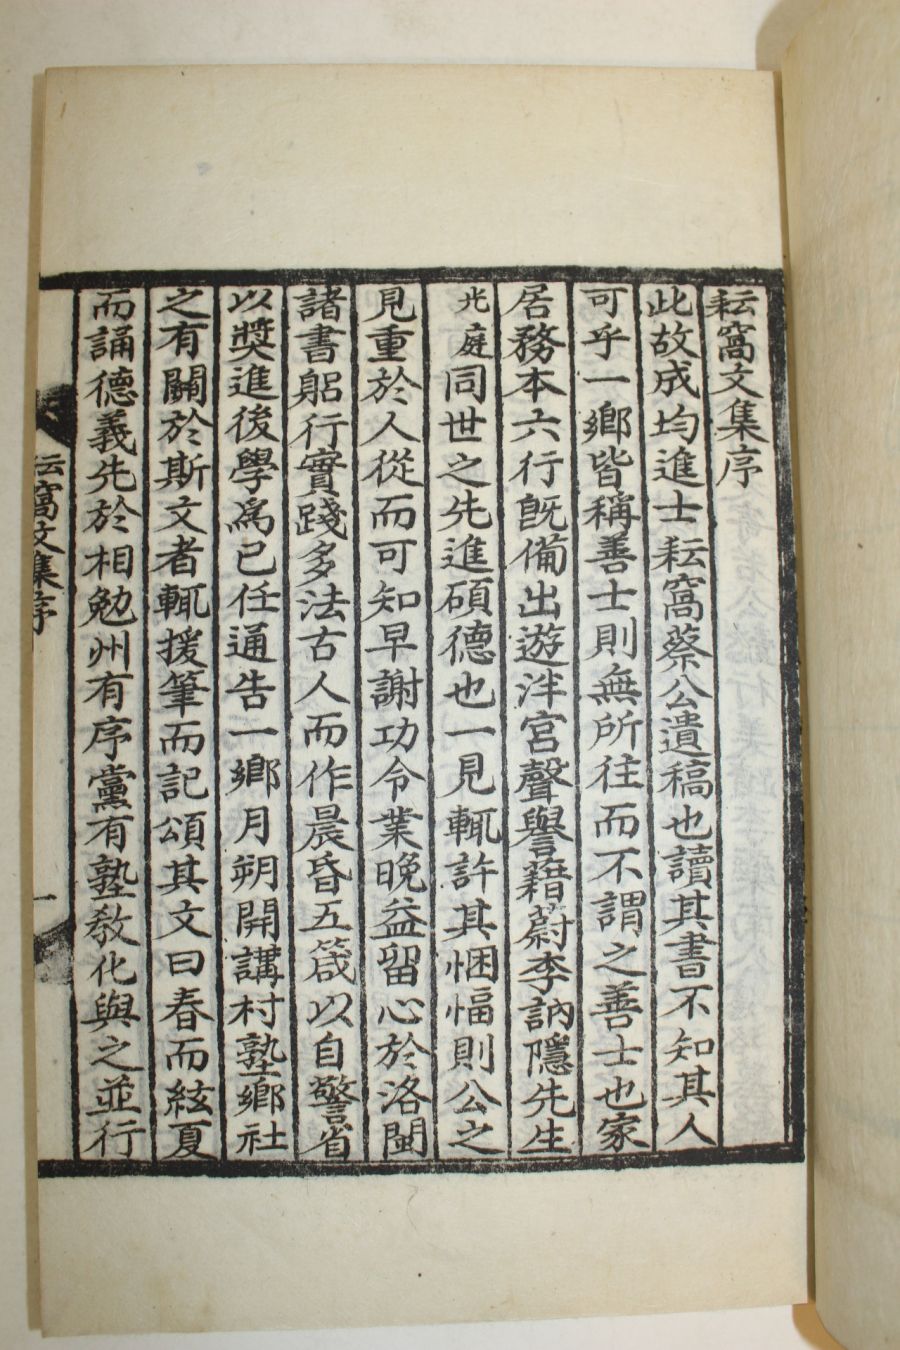 耘窩文集序
此故成均進士耘窩蔡公遺稿也讀其書不知其人
可乎一鄉皆稱善士則無所往而不謂之善士也家
居務本六行旣備出遊泮宮聲譽籍蔚李訥隱先生
光庭同世之先進碩德也一見輒許其悃愊則公之
見重於人從而可知早謝功令業晚益留心於洛閩
諸書躬行實踐多法古人而作晨昏五箴以自警省
以奬進後學爲已任通告一鄉月朔開講村塾鄉社
之有關於斯文者輒援筆而記頌其文曰春而絃夏
而誦德義先於相勉州有序黨有塾敎化與之並行
耘窩文集序
一